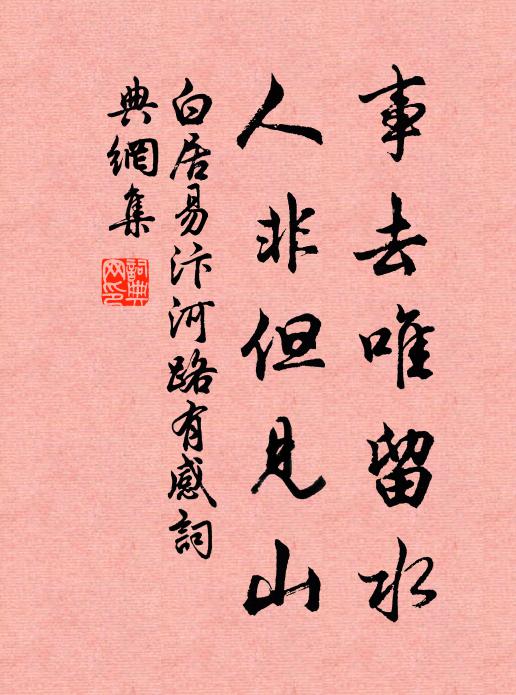 事去唯留水
人非但見山
白居易汴河路有感詞
典網集
詞典網印